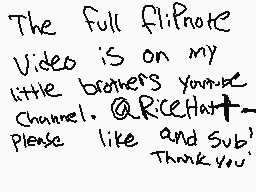 The full flipnote
Video is on my
little brothers youtube
Channel. @RiceHatt-
Please like and sub!
Thank you!